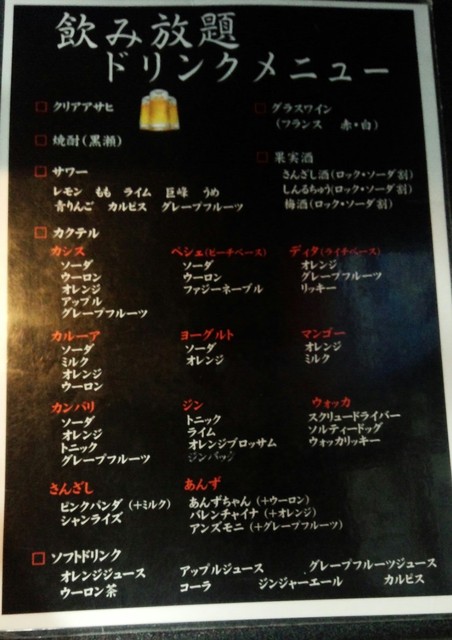 飲み放題
ドリンクメニュー
クリアアサヒ
焼酎(黒瀬)
サワー
レモン もも ライム 巨峰 うめ
青りんご カルピス グレープフルーツ
グラスワイン
(フランス 赤・白)
果実酒
さんざし酒(ロック・ソーダ割)
しんるちゅう(ロック・ソーダ割)
梅酒(ロック・ソーダ割)
カクテル
カシス
ソーダ
ウーロン
オレンジ
アップル
グレープフルーツ
ペシェ(ピーチベース)
ソーダ
ウーロン
ファジーネーブル
ディタ(ライチベース)
オレンジ
グレープフルーツ
リッキー
カルーア
ソーダ
ミルク
オレンジ
ウーロン
ヨーグルト
ソーダ
オレンジ
マンゴー
オレンジ
ミルク
カンパリ
ソーダ
オレンジ
トニック
グレープフルーツ
ジン
トニック
ライム
オレンジブロッサム
ジンバック
ウォッカ
スクリュードライバー
ソルティードッグ
ウォッカリッキー
さんざし
ピンクパンダ(+ミルク)
シャンライズ
あんず
あんずちゃん(+ウーロン)
バレンチャイナ(+オレンジ)
アンズモニ(+グレープフルーツ)
ソフトドリンク
オレンジジュース アップルジュース グレープフルーツジュース
ウーロン茶 コーラ ジンジャーエール カルピス